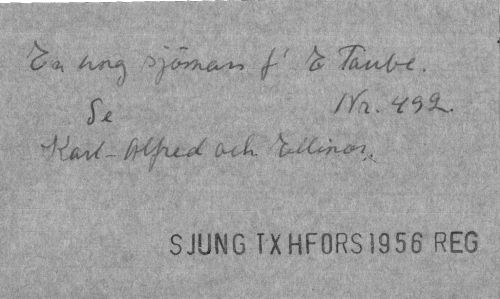 En ung sjöman f' E Taube.
Nr. 492.
Se
Karl-Alfred och Ellinor.
SJUNG TXHFORS1956 REG